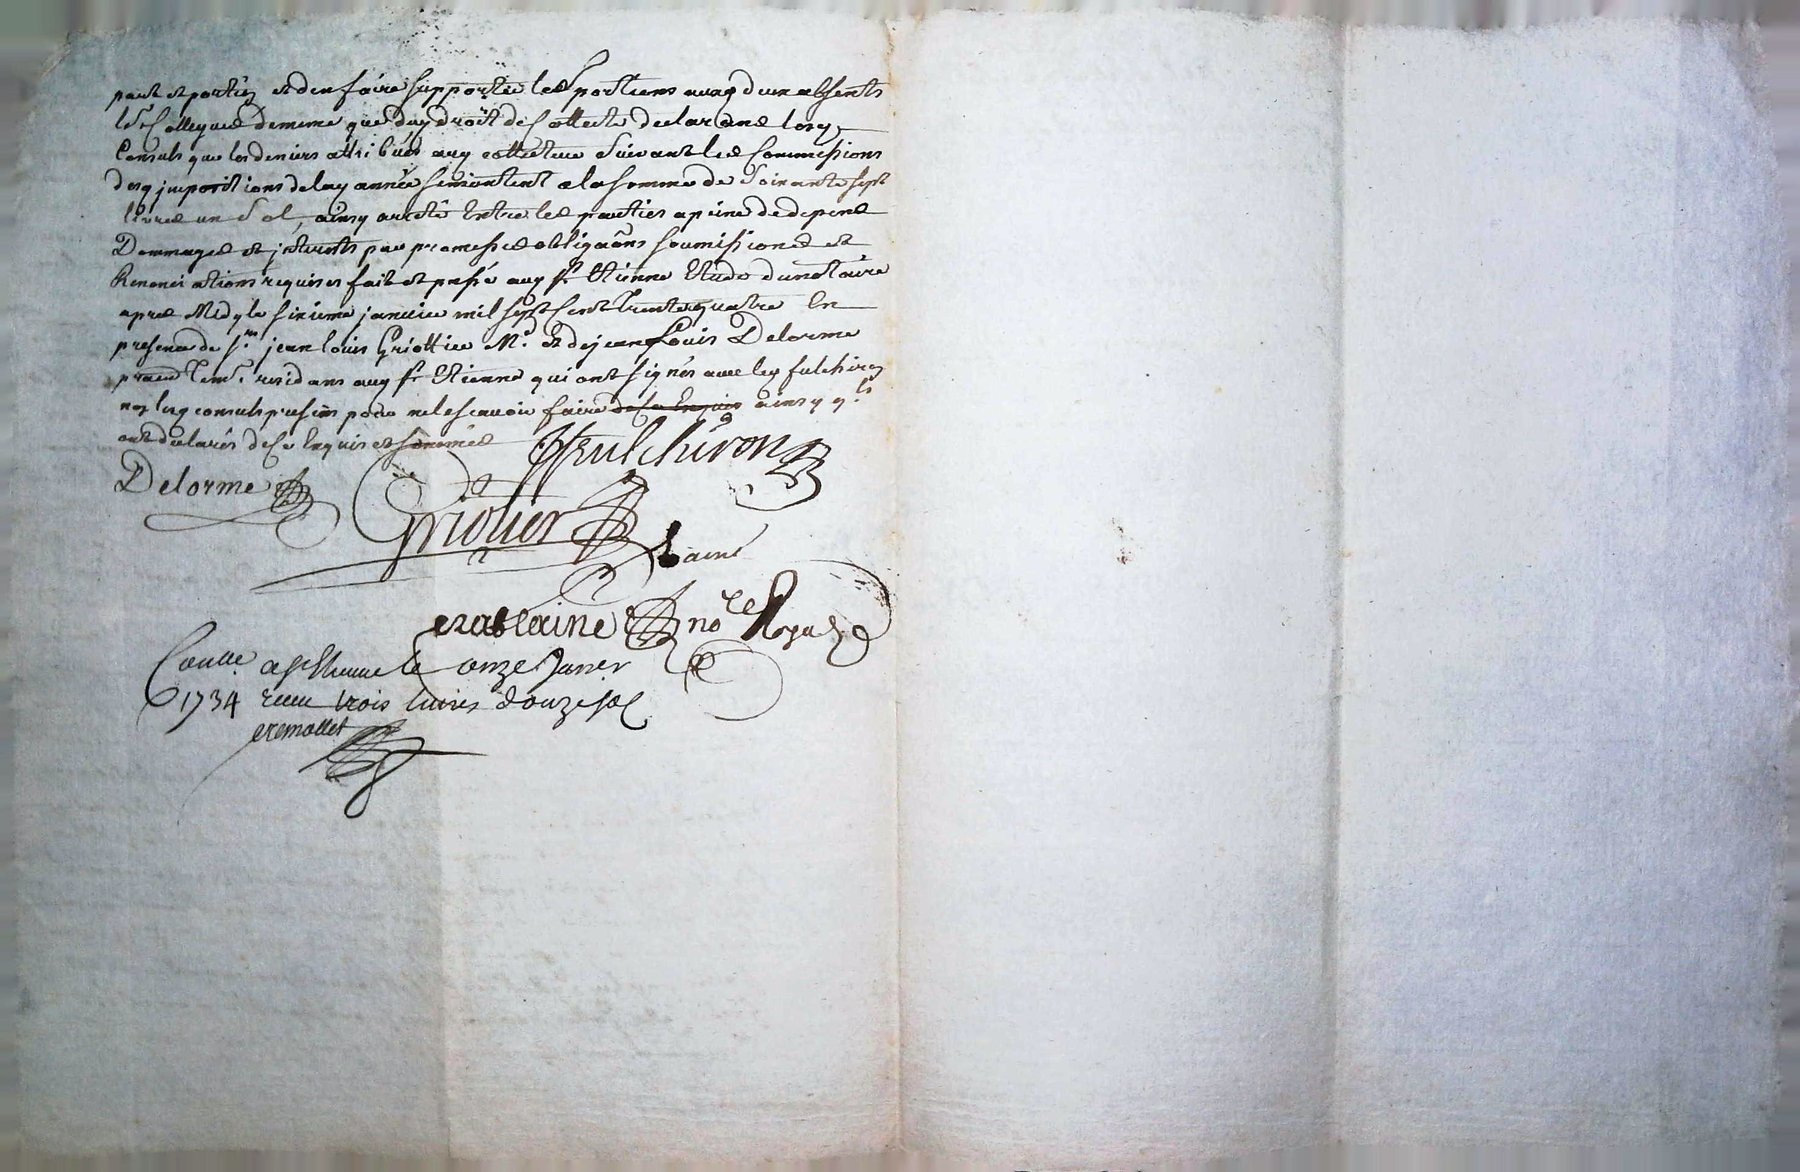 part et portion et den faire supporter les portions auxd. deux absents
leurs collegues de meme que dud. droit de collecte declarans lesd.
Consuls que les deniers attribués aux collecteurs suivant les Commissions
desd. impositions de lad. année se montent a la somme de Soixante sept
livres un sol, ainsy arreté Entre les parties a peine de depens
Dommages et interests par promesses obligaôns soumissions et
Renonciations requises fait et passé aud. st. Etienne Etude du notaire
apres Midy le sixieme janvier mil sept Cent trente quatre En
presence de sr. jean louis Griottier Md. et de jean Louis Delorme
praticien residans aud. st. Etienne qui ont signés avec led. fulchiron
non lesd. consuls presens pour ne le scavoir faire de ce Enquis ainsy qls
ont declarés de ce Enquis et sommés
Delorme ffulchiron
Griotier
Lainé
nore Royal
Conlle a st Etienne le onze Janer
1734 receu trois livres douze sol